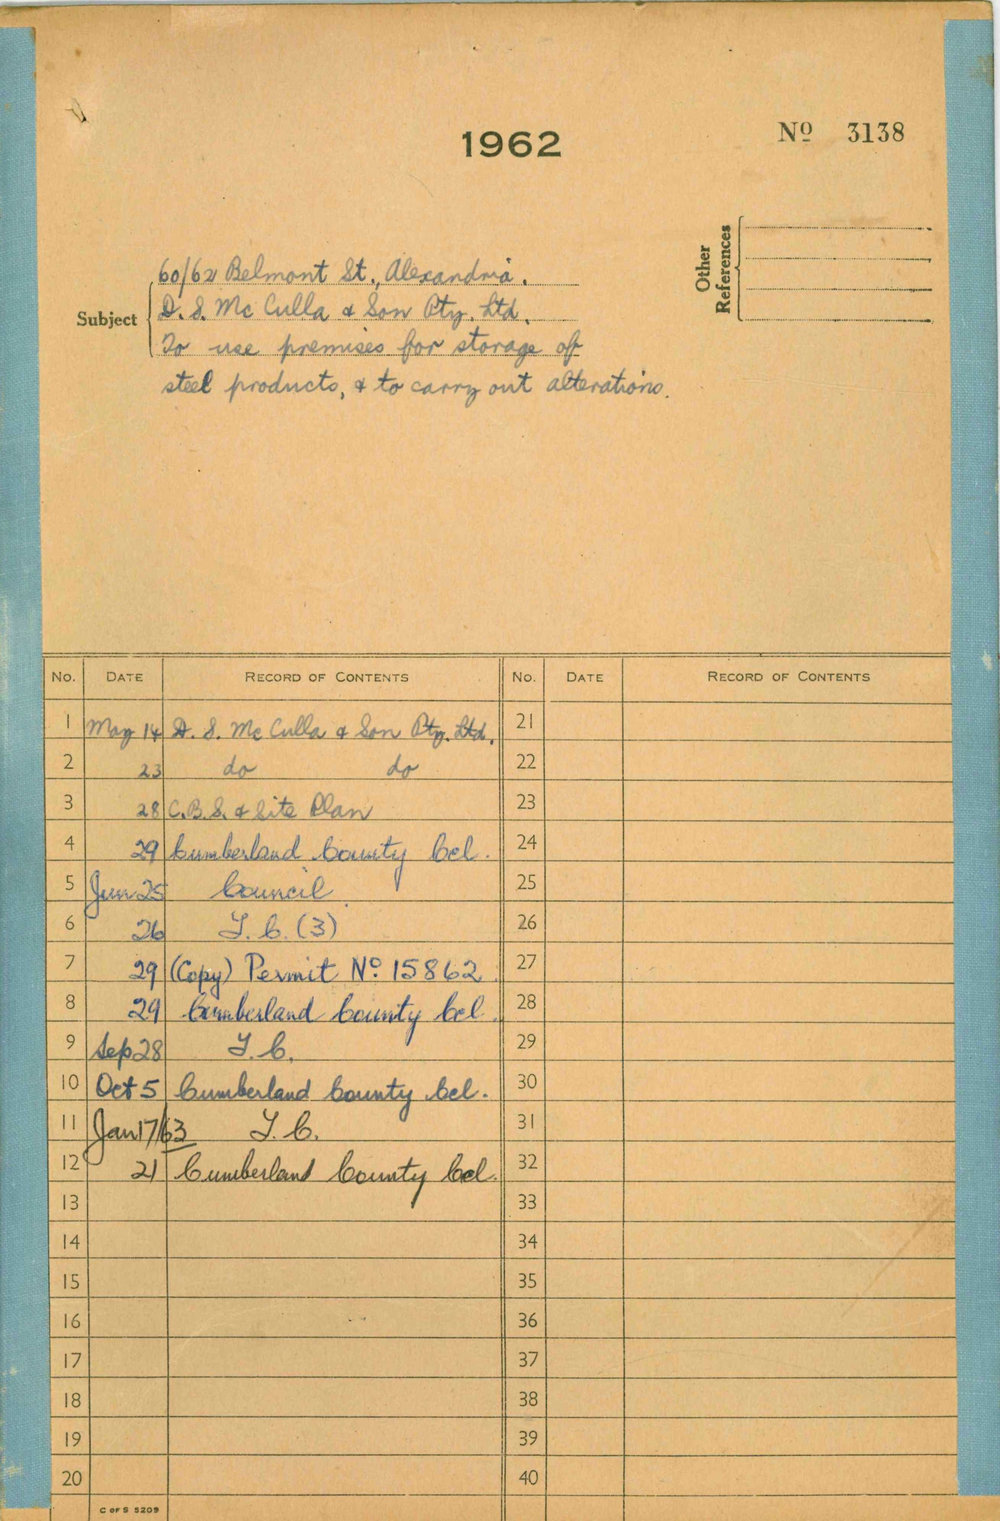 1962
Nº 3138
Other References
Subject
60/62 Belmont St., Alexandria.
D. S. Mc Culla & Son Pty. Ltd.
To use premises for storage of
steel products, & to carry out alterations.
No. DATE RECORD OF CONTENTS No. DATE RECORD OF CONTENTS
1 May 14 D. S. Mc Culla & Son Pty. Ltd. 21
2 23 do do 22
3 28 C.B.S. & Site Plan 23
4 29 Cumberland County Ccl. 24
5 Jun 25 Council 25
6 26 T.C. (3) 26
7 29 (Copy) Permit Nº 15862 27
8 29 Cumberland County Ccl. 28
9 Sep 28 T.C. 29
10 Oct 5 Cumberland County Ccl. 30
11 Jan 17/63 T.C. 31
12 21 Cumberland County Ccl. 32
13 33
14 34
15 35
16 36
17 37
18 38
19 39
20 40
C OF S 5209